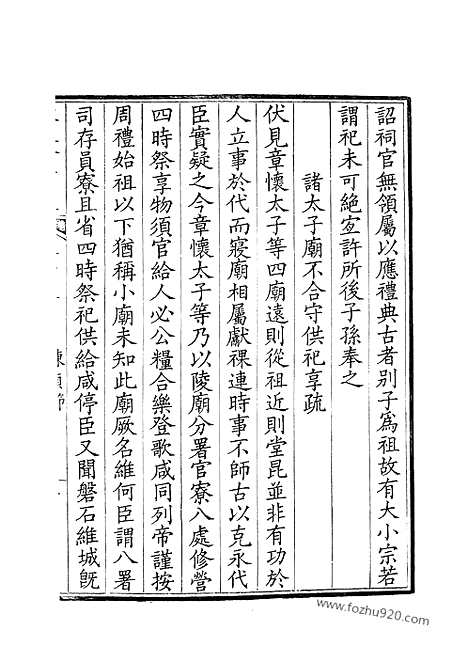 詔祠官無領屬以應禮典古者别子爲祖故有大小宗若
謂祀未可絶宜許所後子孫奉之
諸太子廟不合守供祀享疏
伏見章懷太子等四廟遠則從祖近則堂昆並非有功於
人立事於代而寢廟相屬獻祼連時事不師古以克永代
臣實疑之今章懷太子等乃以陵廟分署官寮八處修營
四時祭享物須官給人必公糧合樂登歌咸同列帝謹按
周禮始祖以下猶稱小廟未知此廟厥名維何臣謂八署
司存員寮且省四時祭祀供給咸停臣又聞磐石維城旣
www.fozhu920.com